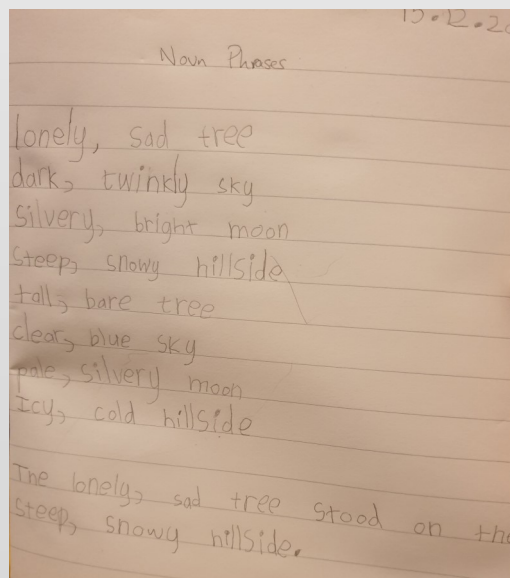 15.12.20
Noun Phrases
lonely, sad tree
dark, twinkly sky
silvery, bright moon
steep, snowy hillside
tall, bare tree
clear, blue sky
pale, silvery moon
Icy, cold hillside
The lonely, sad tree stood on the
steep, snowy hillside.